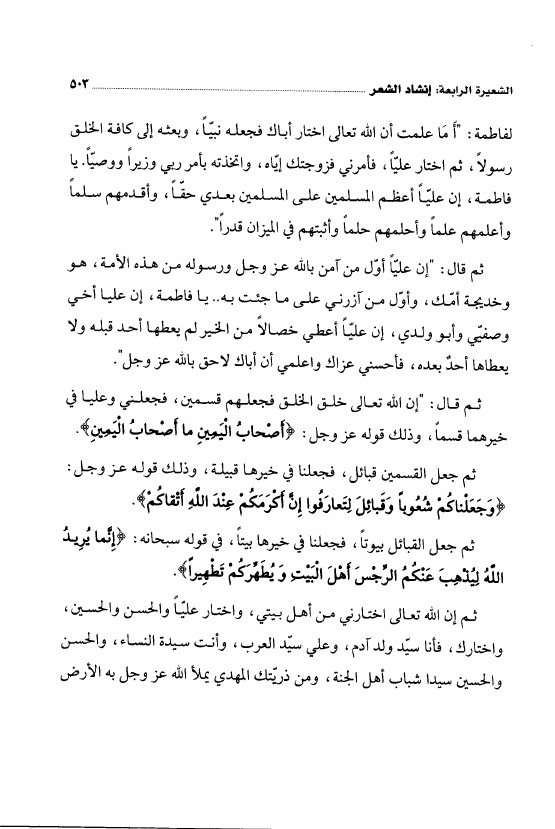 الشعيرة الرابعة: إنشاد الشعر ........................................................ ٥٠٣
لفاطمة: "أَ مَا علمت أن الله تعالى اختار أباك فجعله نبيّاً، وبعثه إلى كافة الخلق
رسولاً، ثم اختار عليّاً، فأمرني فزوجتك إيّاه، واتخذته بأمر ربي وزيراً ووصيّاً. يا
فاطمة، إن عليّاً أعظم المسلمين على المسلمين بعدي حقّاً، وأقدمهم سلماً
وأعلمهم علماً وأحلمهم حلماً وأثبتهم في الميزان قدراً".
ثم قال: "إن عليّاً أوّل من آمن بالله عز وجل ورسوله من هذه الأمة، هو
وخديجة أمّك، وأوّل من آزرني على ما جئت به.. يا فاطمة، إن عليا أخي
وصفيّي وأبو ولدي، إن عليّاً أعطي خصالاً من الخير لم يعطها أحد قبله ولا
يعطاها أحدٌ بعده، فأحسني عزاك واعلمي أن أباك لاحق بالله عز وجل".
ثم قال: "إن الله تعالى خلق الخلق فجعلهم قسمين، فجعلني وعليا في
خيرهما قسماً، وذلك قوله عز وجل: ﴿أَصْحابُ الْيَمِينِ ما أَصْحابُ الْيَمِينِ﴾.
ثم جعل القسمين قبائل، فجعلنا في خيرها قبيلة، وذلك قوله عز وجل:
﴿وَجَعَلْناكُمْ شُعُوباً وَقَبائِلَ لِتَعارَفُوا إِنَّ أَكْرَمَكُمْ عِنْدَ اللَّهِ أَتْقاكُمْ﴾.
ثم جعل القبائل بيوتاً، فجعلنا في خيرها بيتاً، في قوله سبحانه: ﴿إِنَّما يُرِيدُ
اللَّهُ لِيُذْهِبَ عَنْكُمُ الرِّجْسَ أَهْلَ الْبَيْتِ وَ يُطَهِّرَكُمْ تَطْهِيراً﴾.
ثم إن الله تعالى اختارني من أهل بيتي، واختار عليّاً والحسن والحسين،
واختارك، فأنا سيّد ولد آدم، وعلي سيّد العرب، وأنت سيدة النساء، والحسن
والحسين سيدا شباب أهل الجنة، ومن ذريّتك المهدي يملأ الله عز وجل به الأرض